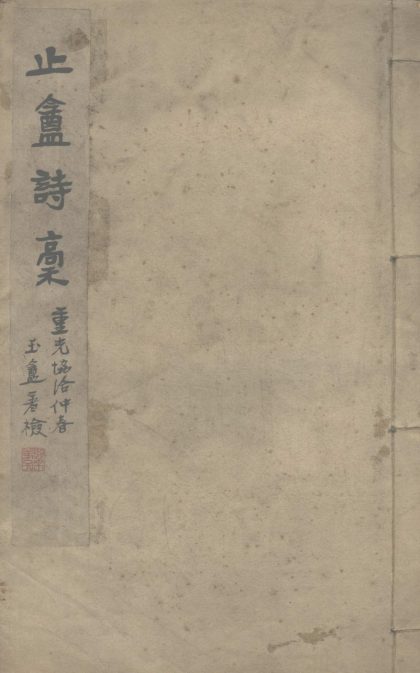 止盦詩稾
重光協洽仲春
玉盦署檢